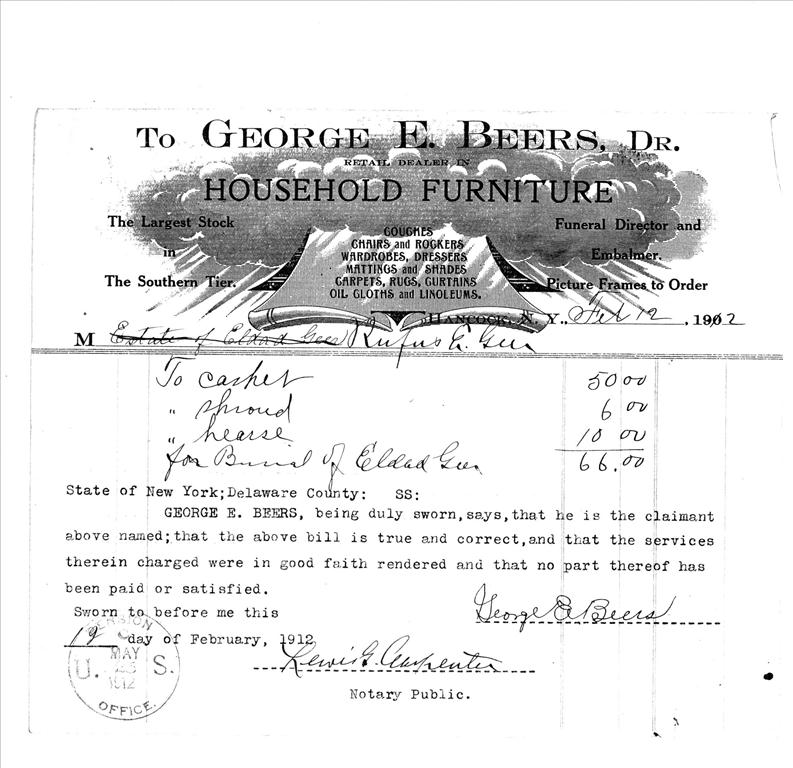 To GEORGE E. BEERS, DR.
RETAIL DEALER IN
HOUSEHOLD FURNITURE
The Largest Stock
in
The Southern Tier.
COUCHES
CHAIRS and ROCKERS
WARDROBES, DRESSERS
MATTINGS and SHADES
CARPETS, RUGS, CURTAINS
OIL CLOTHS and LINOLEUMS.
Funeral Director and
Embalmer.
Picture Frames to Order
HANCOCK, N. Y., Feb 12, 1912
M Estate of Eldad Geer Rufus E. Geer
To casket 50 00
" shroud 6 00
" hearse 10 00
for Burial of Eldad Geer 66.00
State of New York;Delaware County: SS:
GEORGE E. BEERS, being duly sworn,says,that he is the claimant
above named;that the above bill is true and correct,and that the services
therein charged were in good faith rendered and that no part thereof has
been paid or satisfied.
Sworn to before me this
12 day of February, 1912
George E Beers
Lewis G. Carpenter
Notary Public.
PENSION
MAY
23
U. S.
1912
OFFICE.